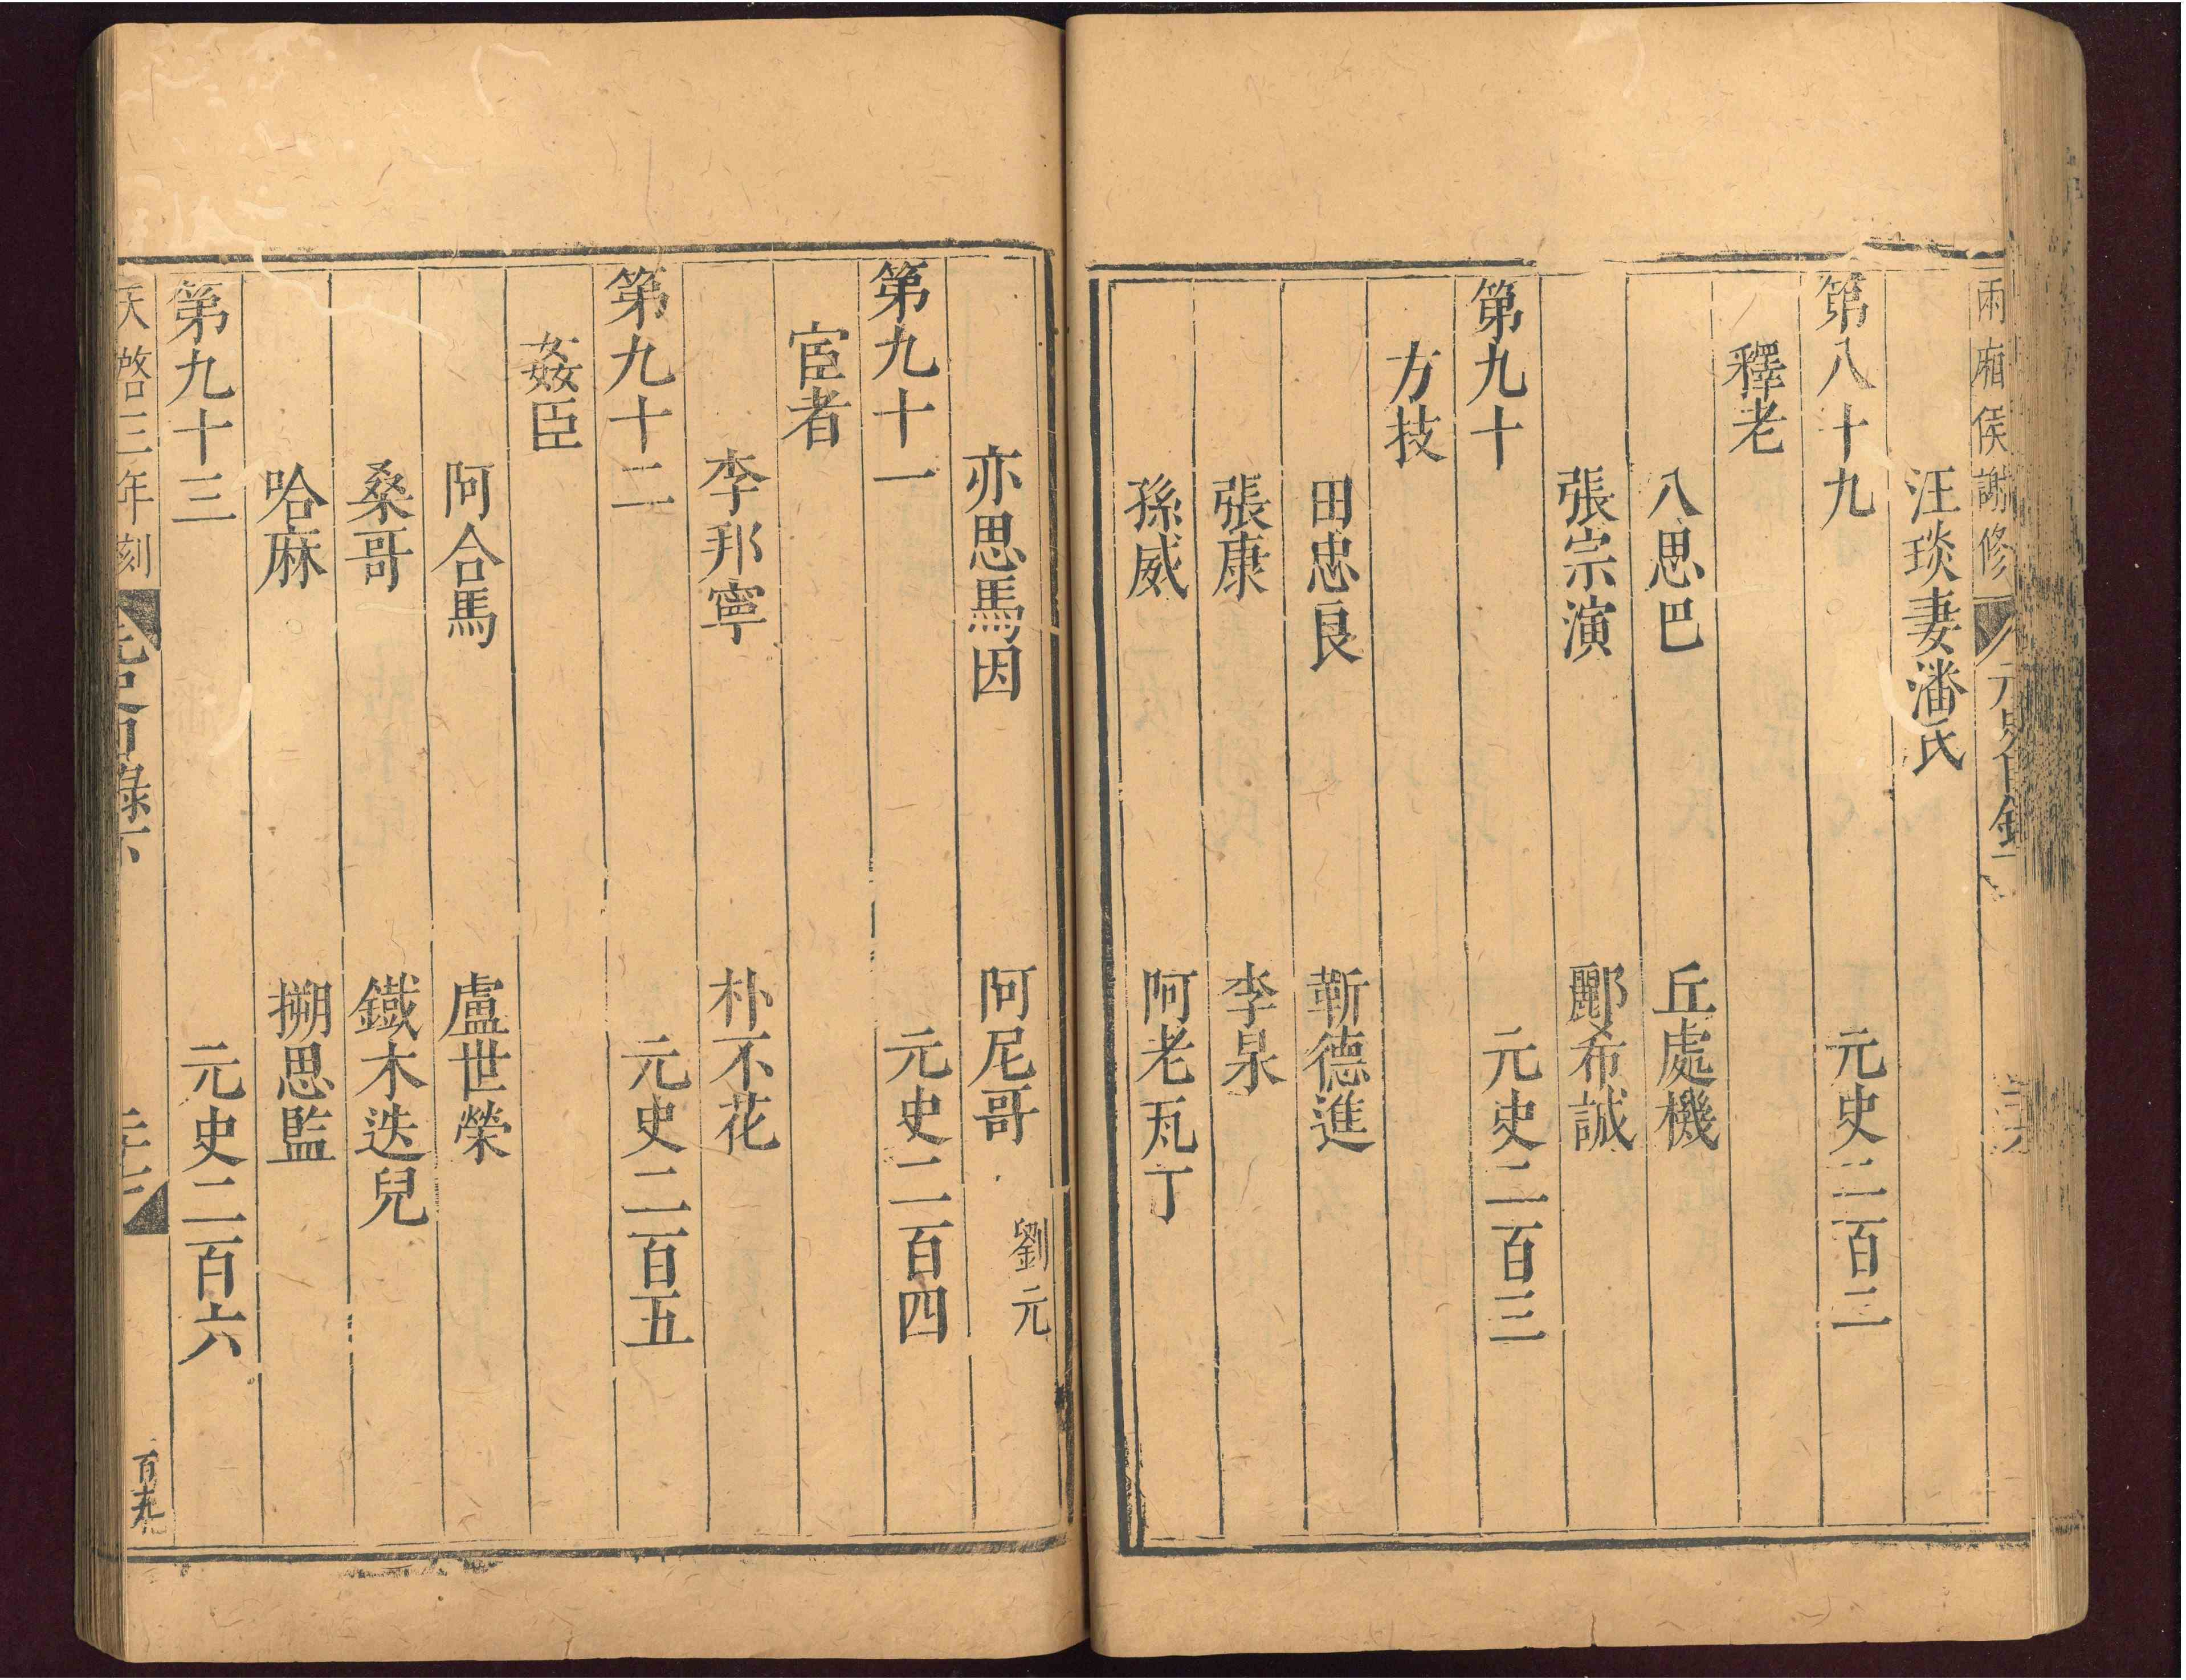 兩廂侯謝修 元史目錄下
汪琰妻潘氏
第八十九 元史二百二
釋老
八思巴 丘處機
張宗演 酈希誠
第九十 元史二百三
方技
田忠良 靳德進
張康 李杲
孫威 阿老瓦丁
亦思馬因 阿尼哥 劉元
第九十一 元史二百四
宦者
李邦寧 朴不花
第九十二 元史二百五
姦臣
阿合馬 盧世榮
桑哥 鐵木迭兒
哈麻 搠思監
第九十三 元史二百六
天啓三年刻 元史目錄下